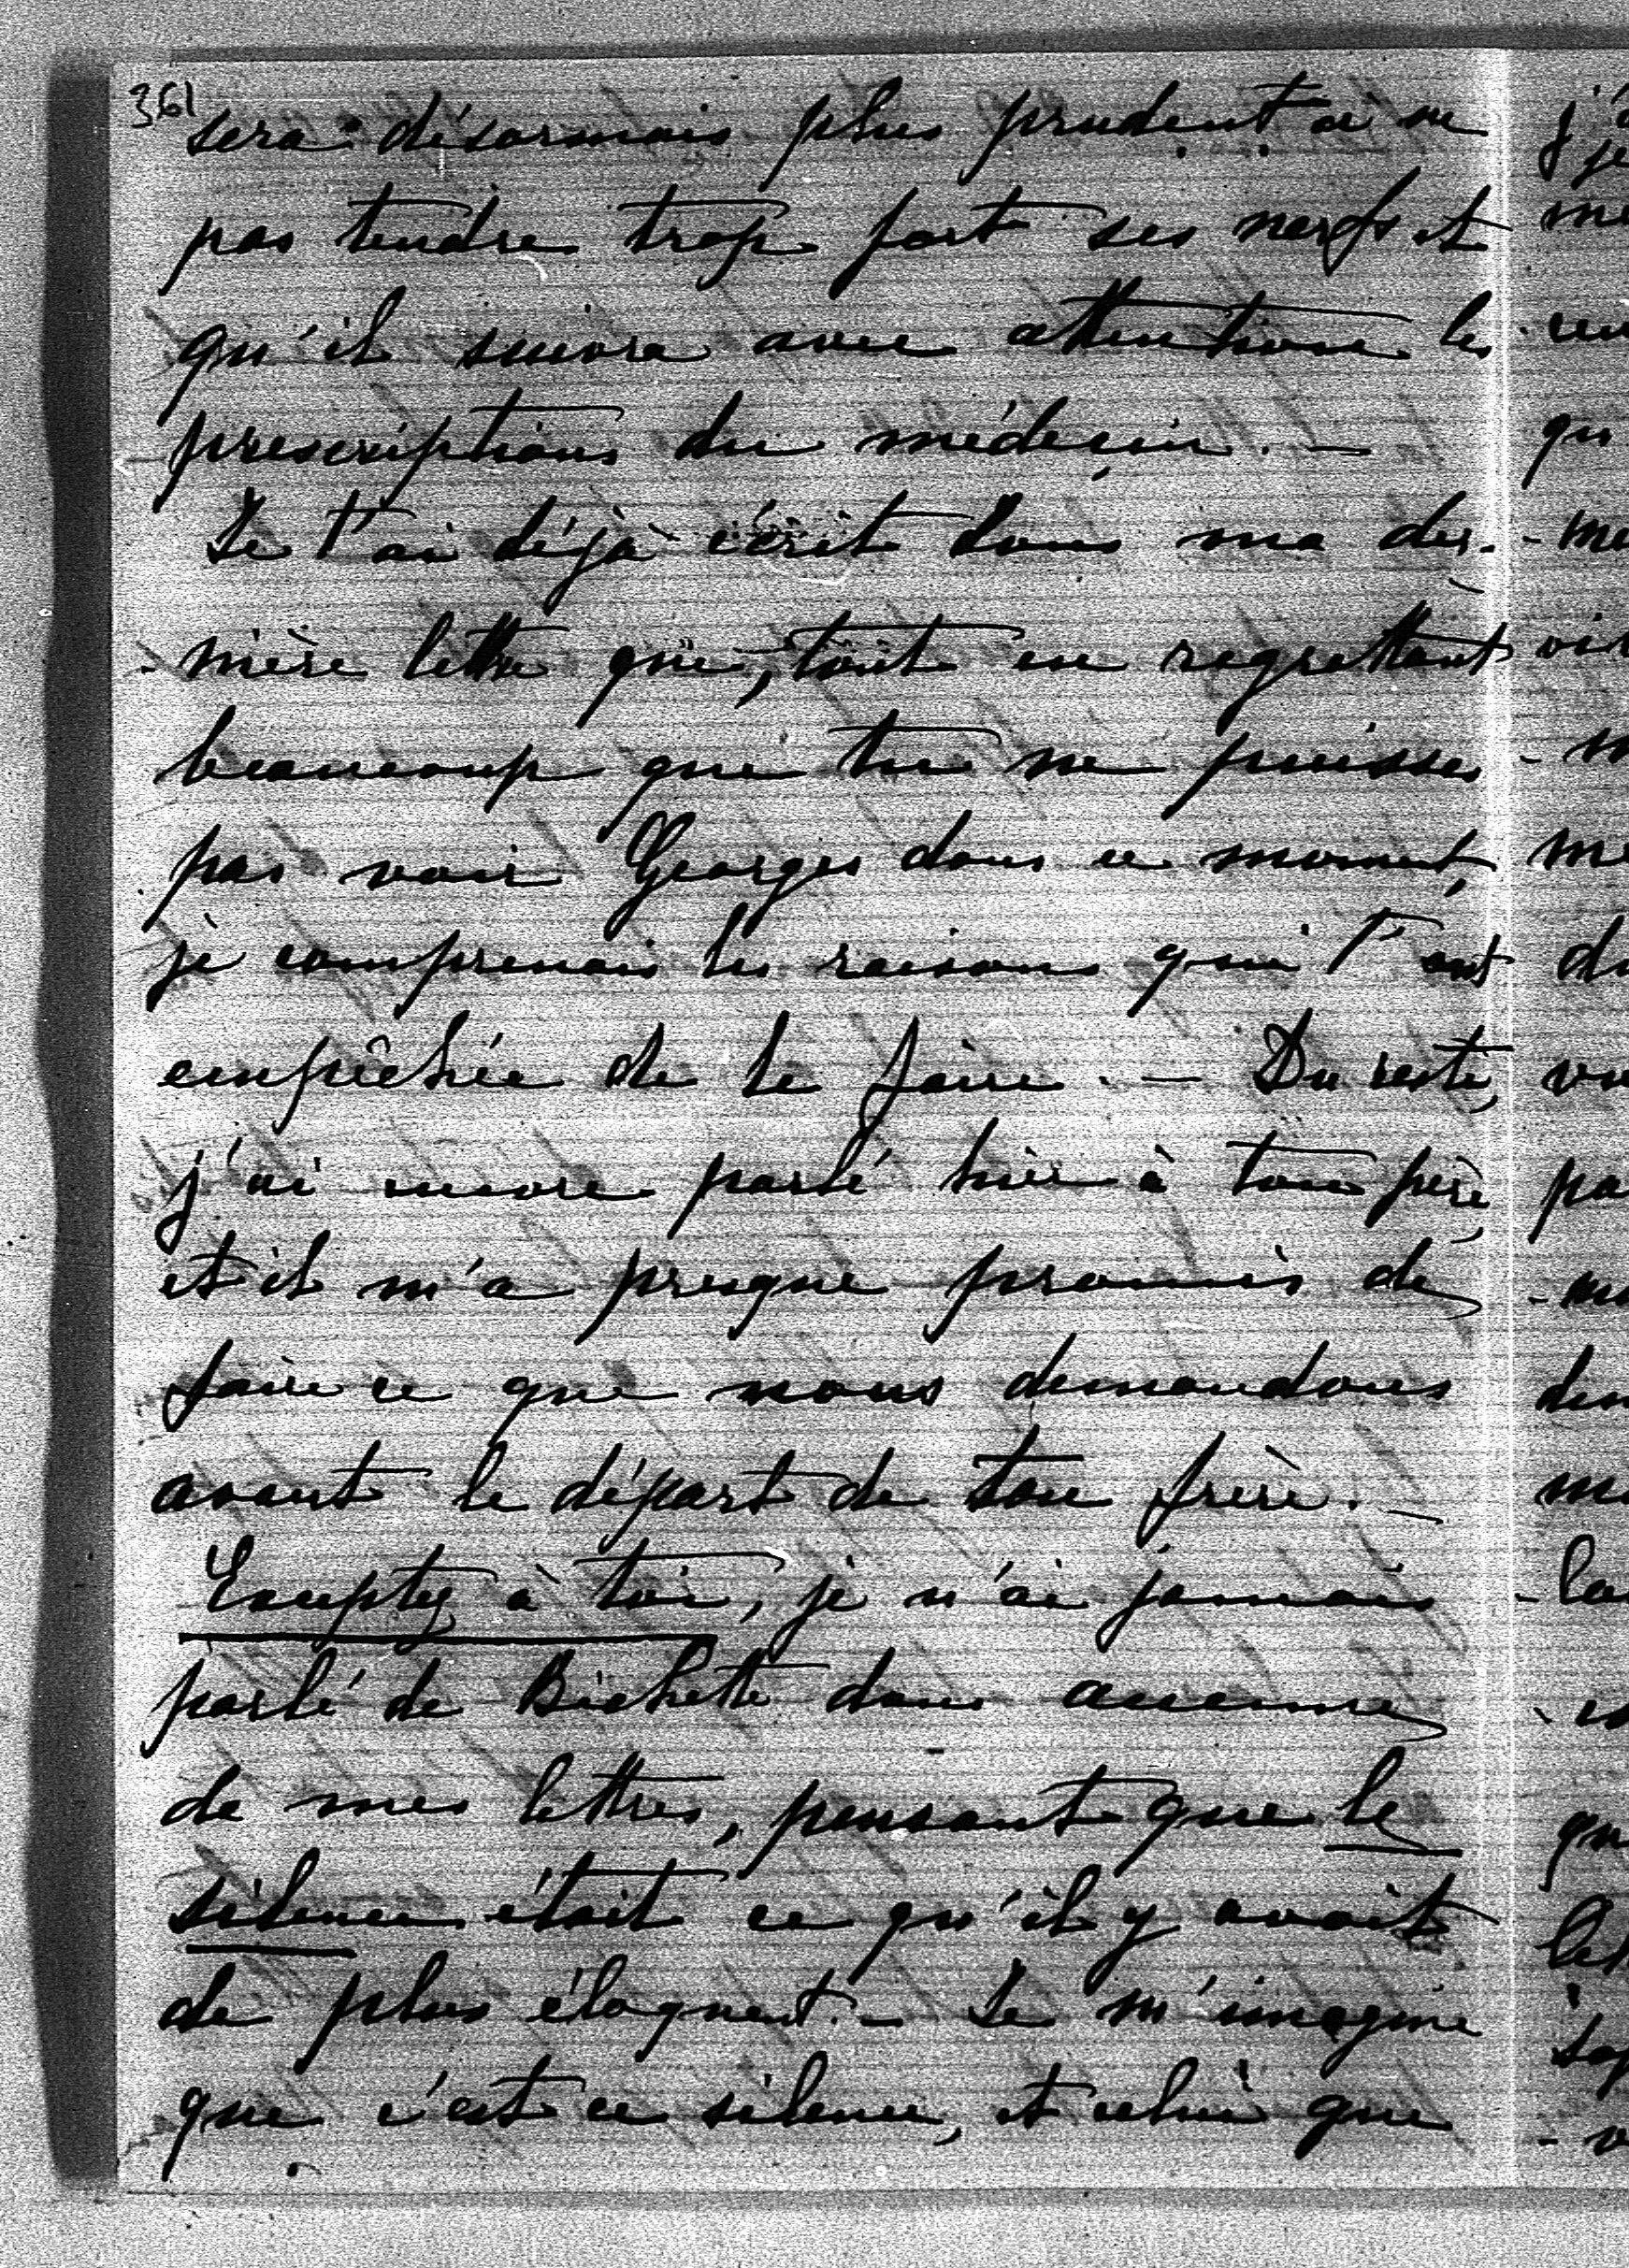 361
sera désormais plus prudent à ne
pas tendre trop fort ses nerfs et
qu'il suivra avec attention les
prescriptions du médecin. —
Je t'ai déjà écrit dans ma der-
-nière lettre que, tout en regrettant
beaucoup que tu ne puisses
pas voir Georges dans ce moment,
je comprenais les raisons qui t'ont
empêchée de le faire. — Du reste,
j'ai encore parlé hier à ton père,
et il m'a presque promis de
faire ce que nous demandons
avant le départ de ton frère. —
Exceptez à toi, je n'ai jamais
parlé de Bichette dans aucune
de mes lettres, pensant que le
silence était ce qu'il y avait
de plus éloquent. — Je m'imagine
que c'est ce silence, et celui que